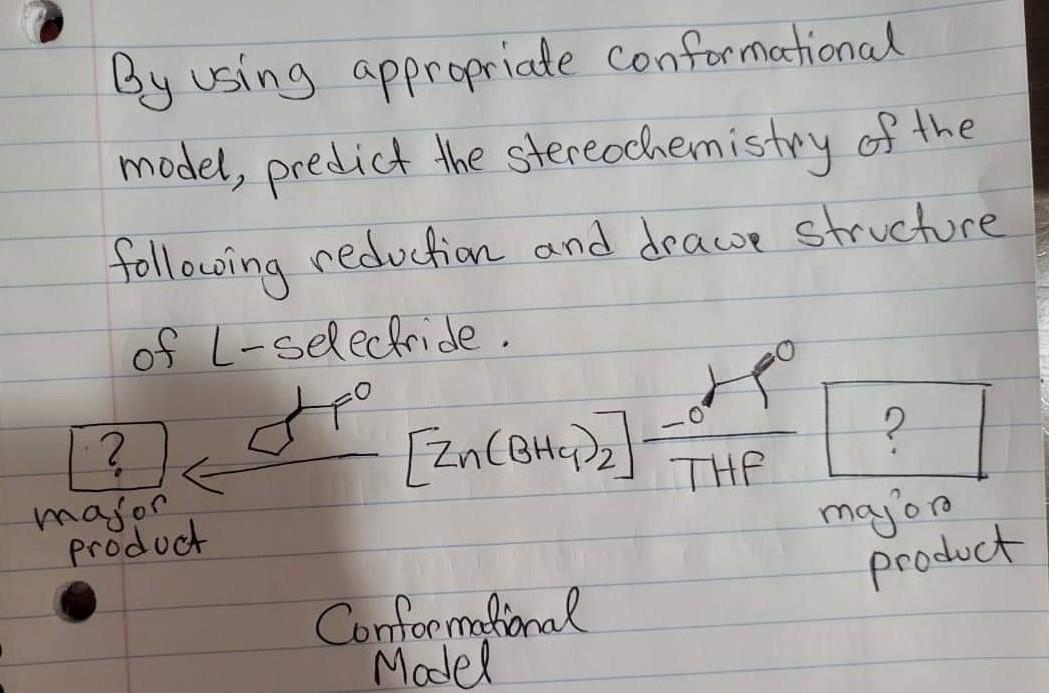 By using appropriate conformational
model, predict the stereochemistry of the
following reduction and drawe structure
of L-selectride.
O
O
-O
? [Zn(BH4)2] THF ?
major
product
major
product
Conformational
Model